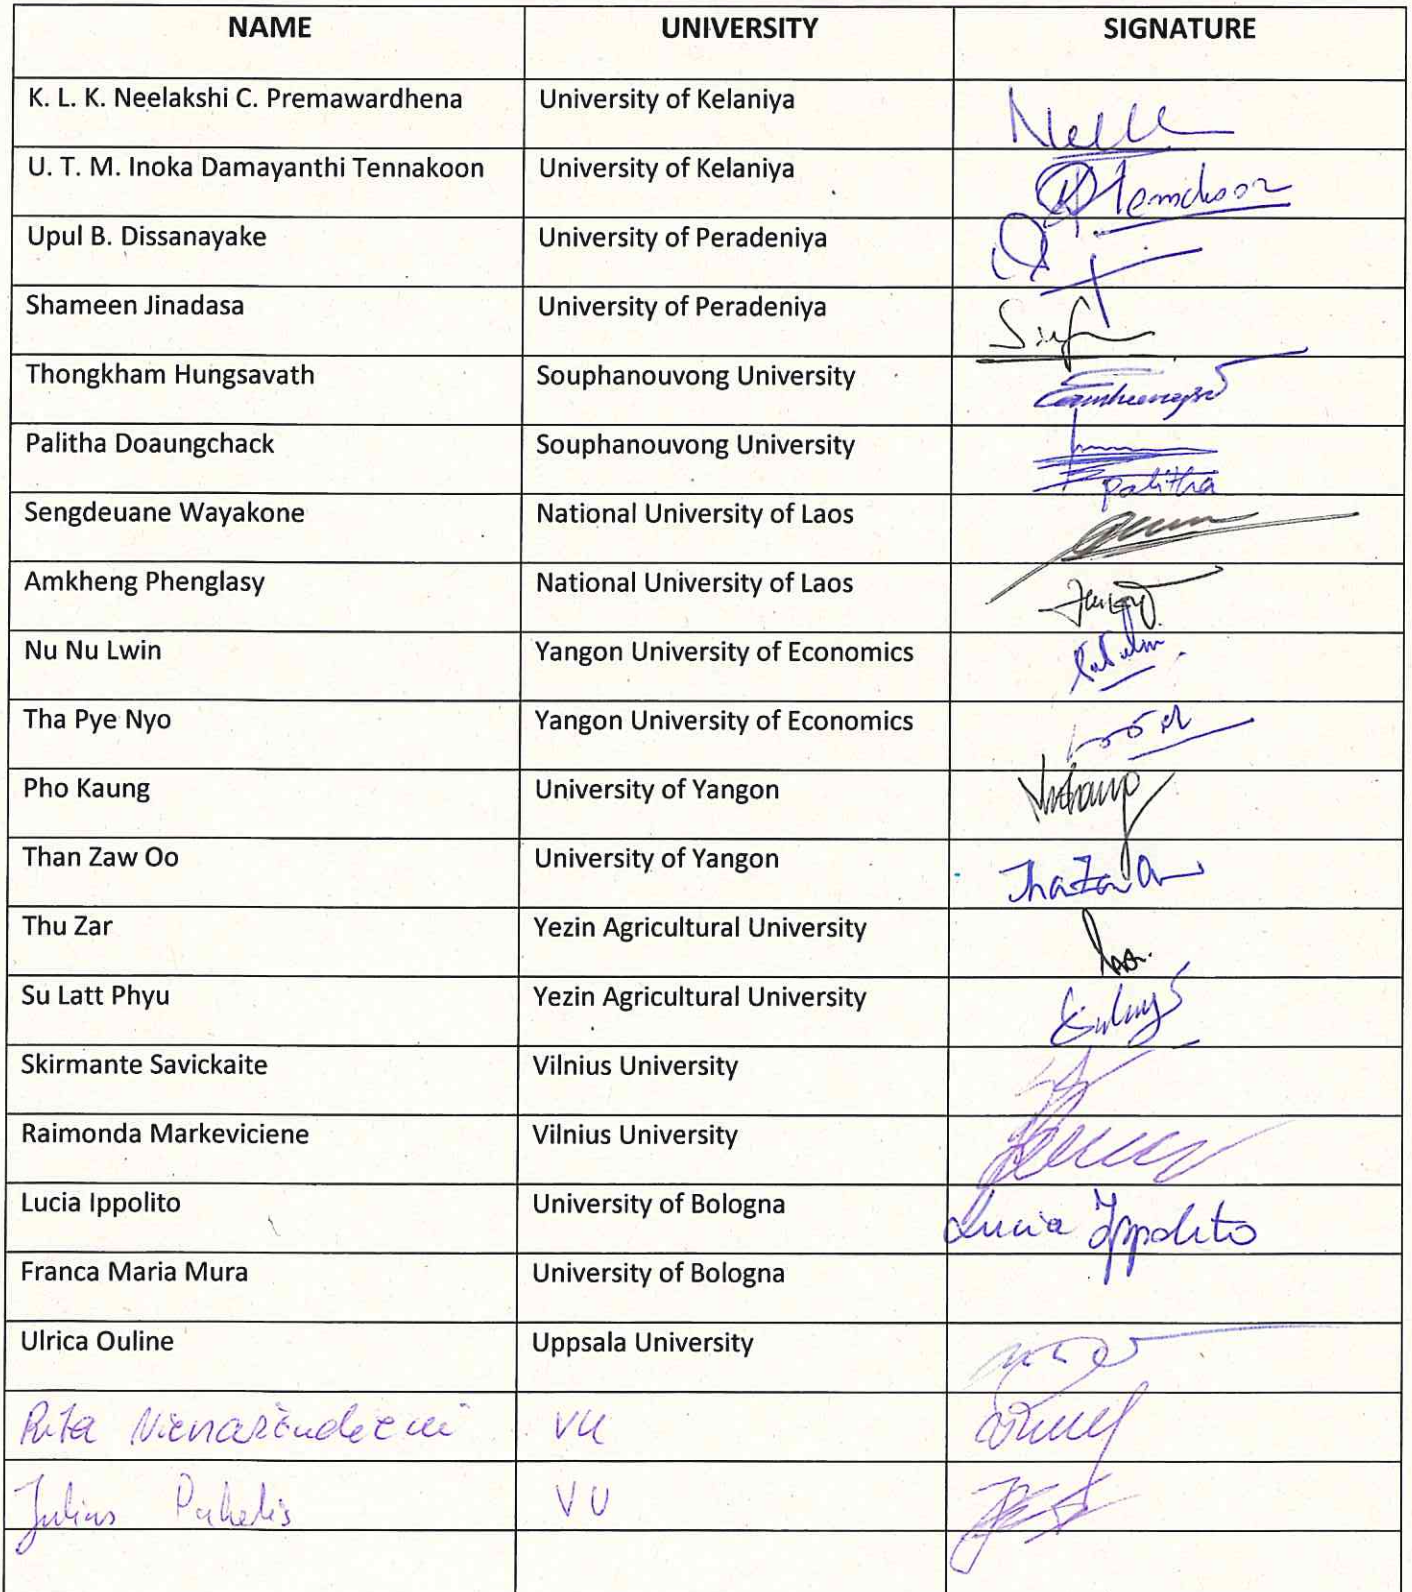 NAME UNIVERSITY SIGNATURE
K. L. K. Neelakshi C. Premawardhena University of Kelaniya
U. T. M. Inoka Damayanthi Tennakoon University of Kelaniya
Upul B. Dissanayake University of Peradeniya
Shameen Jinadasa University of Peradeniya
Thongkham Hungsavath Souphanouvong University
Palitha Doaungchack Souphanouvong University palitha
Sengdeuane Wayakone National University of Laos
Amkheng Phenglasy National University of Laos
Nu Nu Lwin Yangon University of Economics
Tha Pye Nyo Yangon University of Economics
Pho Kaung University of Yangon
Than Zaw Oo University of Yangon
Thu Zar Yezin Agricultural University
Su Latt Phyu Yezin Agricultural University
Skirmante Savickaite Vilnius University
Raimonda Markeviciene Vilnius University
Lucia Ippolito University of Bologna Lucia Ippolito
Franca Maria Mura University of Bologna
Ulrica Ouline Uppsala University
Rita VU
Julius VU